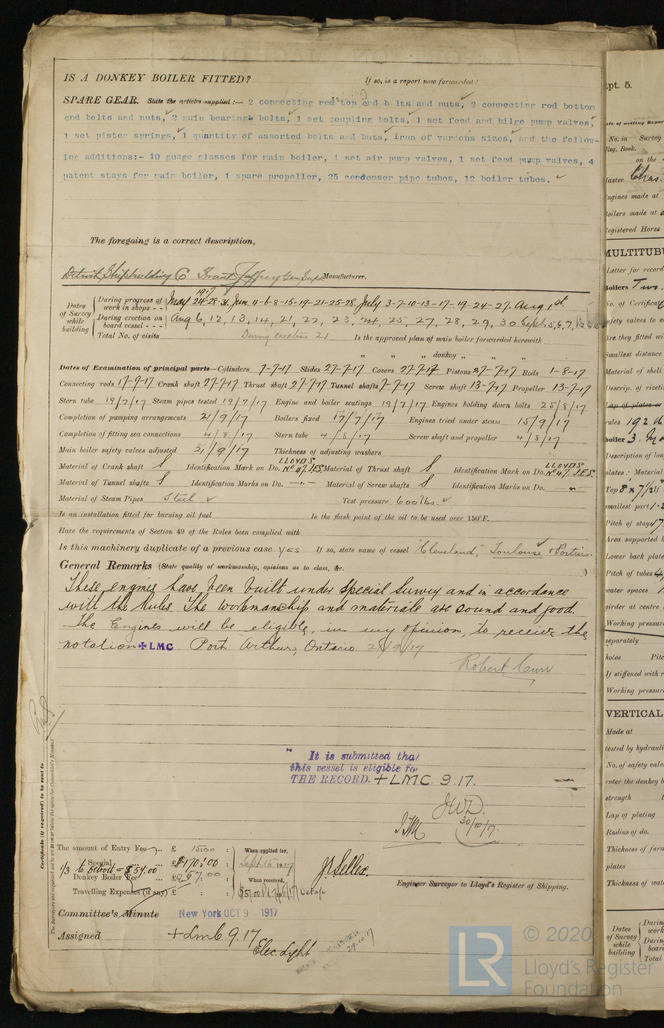 IS A DONKEY BOILER FITTED? If so, is a report now forwarded?
SPARE GEAR. State the articles supplied:— 2 connecting rod top end bolts and nuts, 2 connecting rod bottom
end bolts and nuts, 2 main bearing bolts, 1 set coupling bolts, 1 set feed and bilge pump valves,
1 set piston springs, 1 quantity of assorted bolts and nuts, iron of various sizes, and the follow-
ing additions:- 10 guage glasses for main boiler, 1 set air pump valves, 1 set feed pump valves, 4
patent stays for main boiler, 1 spare propeller, 25 condenser pipe tubes, 12 boiler tubes.
The foregoing is a correct description,
Detroit Shipbuilding Co Manufacturer.
Dates of Survey while building
During progress of work in shops - - 1917 May 24-28-31, June 4-6-8-15-19-21-25-28, July 3-7-10-13-17-19-24-27. Aug 1st
During erection on board vessel - - - Aug 6, 12, 13, 14, 21, 22, 23, 24, 25, 27, 28, 29, 30 Sept 5, 6, 7,
Total No. of visits During erection 21 Is the approved plan of main boiler forwarded herewith
" " " donkey " " "
Dates of Examination of principal parts—Cylinders 7-7-17 Slides 27-7-17 Covers 27-7-17 Pistons 27-7-17 Rods 1-8-17
Connecting rods 17-7-17 Crank shaft 27-7-17 Thrust shaft 27-7-17 Tunnel shafts 7-7-17 Screw shaft 13-7-17 Propeller 13-7-17
Stern tube 19/7/17 Steam pipes tested 19/7/17 Engine and boiler seatings 19/7/17 Engines holding down bolts 25/8/17
Completion of pumping arrangements 21/9/17 Boilers fixed 17/7/17 Engines tried under steam 15/9/17
Completion of fitting sea connections 4/8/17 Stern tube 4/8/17 Screw shaft and propeller 4/8/17
Main boiler safety valves adjusted 21/9/17 Thickness of adjusting washers
Material of Crank shaft S Identification Mark on Do. LLOYDS No 47. J.E.S. Material of Thrust shaft S Identification Mark on Do. LLOYDS No 47. J.E.S.
Material of Tunnel shafts S Identification Marks on Do. —"— Material of Screw shafts S Identification Marks on Do. "
Material of Steam Pipes Steel Test pressure 600 lbs.
Is an installation fitted for burning oil fuel Is the flash point of the oil to be used over 150°F.
Have the requirements of Section 49 of the Rules been complied with
Is this machinery duplicate of a previous case yes If so, state name of vessel "Cleveland," Toulouse & Poitiers.
General Remarks (State quality of workmanship, opinions as to class, &c. )
These engines have been built under Special Survey and in accordance
with the Rules. The workmanship and materials are sound and good.
The Engines will be eligible, in my opinion, to receive the
notation +LMC. Port Arthur, Ontario 21/9/17
Robert Curr
It is submitted that
this vessel is eligible for
THE RECORD. +LMC 9.17.
JWD
30/10/17
Certificate (if required) to be sent to
The amount of Entry Fee £ 15:00 When applied for,
Special £ 170:00 Sept 15 1917
1/3 to Detroit = $57.00
Donkey Boiler Fee £ When received,
Travelling Expenses (if any) £
Engineer Surveyor to Lloyd's Register of Shipping.
Committee's Minute New York OCT 9 1917
Assigned +Lmc 9.17
Elec. Light
LR © 2020
Lloyd's Register
Foundation
Rpt. 5.
No. in Survey
Reg. Book.
on the
Master Chas.
Engines made at
Boilers made at
Registered Horse
MULTITUBU
Letter for record
Boilers Two
No. of Certific
Smallest distance
Material of shell
Working pressure
VERTICAL
Made at
No. of safety valv
enter the donkey b
strength
Lap of plating
Radius of do.
Thickness of furn
plates
Thickness of wate
Dates of Survey while building
Total